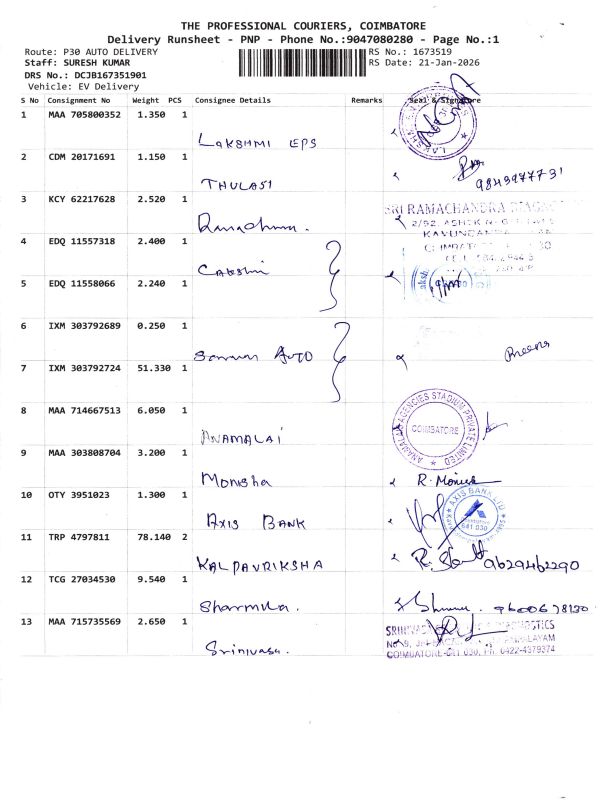 THE PROFESSIONAL COURIERS, COIMBATORE
Delivery Runsheet - PNP - Phone No.:9047080280 - Page No.:1
Route: P30 AUTO DELIVERY RS No.: 1673519
Staff: SURESH KUMAR RS Date: 21-Jan-2026
DRS No.: DCJB167351901
Vehicle: EV Delivery
S No Consignment No Weight PCS Consignee Details Remarks Seal & Signature
1 MAA 705800352 1.350 1
LAKSHMI EPS
2 CDM 20171691 1.150 1
THULASI
9843977731
3 KCY 62217628 2.520 1
SRI RAMACHANDRA
2/92, ASHOK
4 EDQ 11557318 2.400 1
Lakshmi
5 EDQ 11558066 2.240 1
6 IXM 303792689 0.250 1
AUTO
7 IXM 303792724 51.330 1
8 MAA 714667513 6.050 1
ANAMALAI
ANAMALAI AGENCIES STADIUM PRIVATE LIMITED
COIMBATORE
9 MAA 303808704 3.200 1
Monisha R. Monish
10 OTY 3951023 1.300 1
AXIS BANK
AXIS BANK LTD
641 030
11 TRP 4797811 78.140 2
KALPAVRIKSHA
9629462290
12 TCG 27034530 9.540 1
Sharmila. 9600678130
13 MAA 715735569 2.650 1
Srinivasa.
COIMBATORE-641 030, PH: 0422-4379374